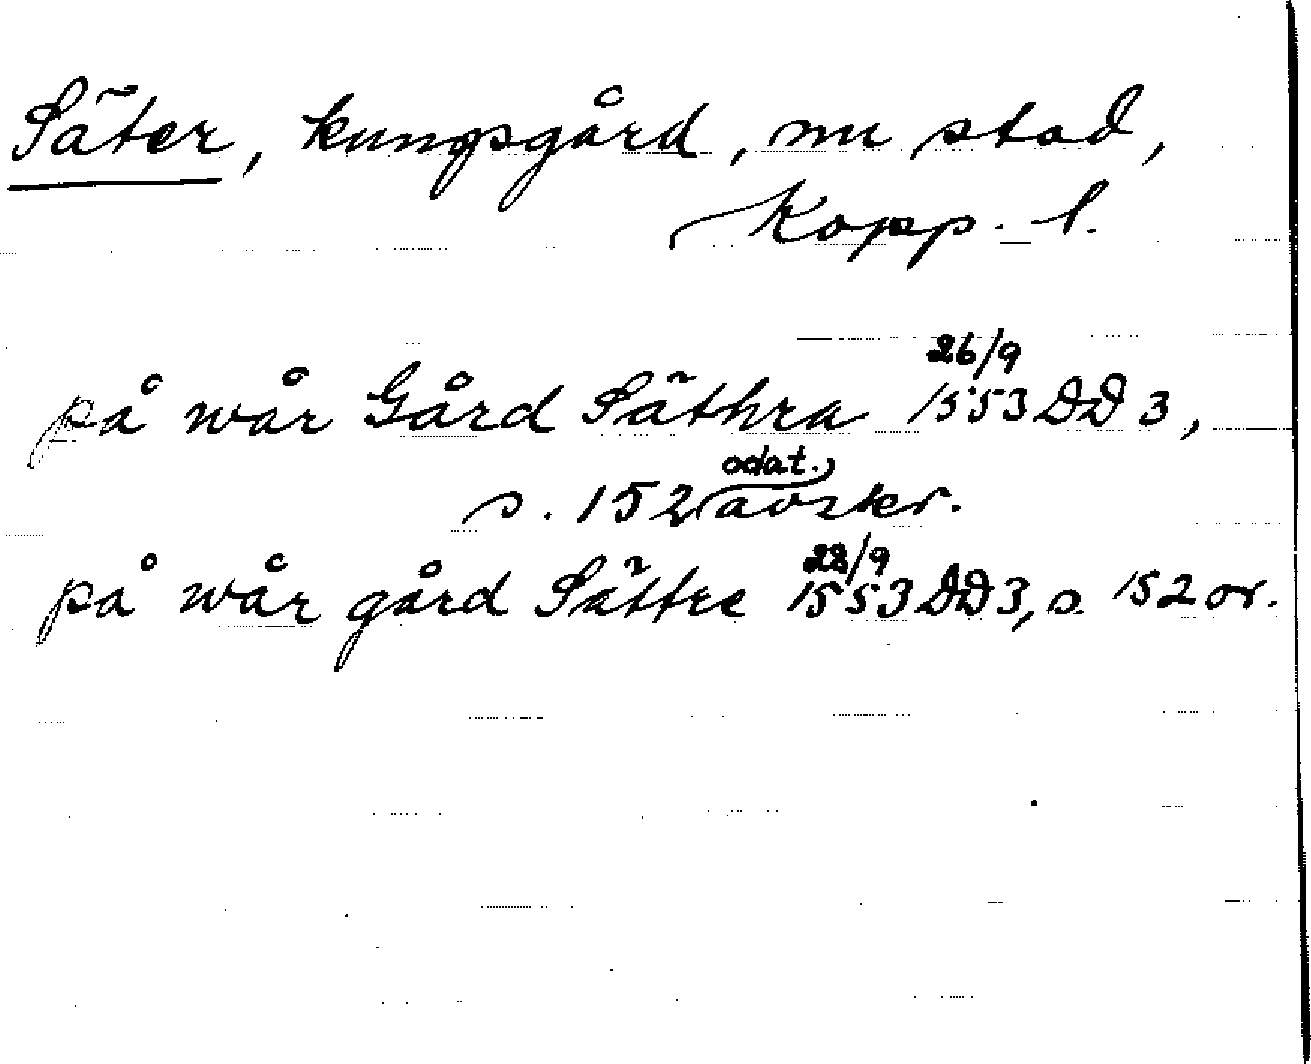 Säter, kungsgård, nu stad,
Kopp. l.
på wår Gård Säthra 26/9 1553 DD 3,
s. 152 odat. avskr.
på wår gård Sättre 28/9 1553 DD 3, s. 152 or.